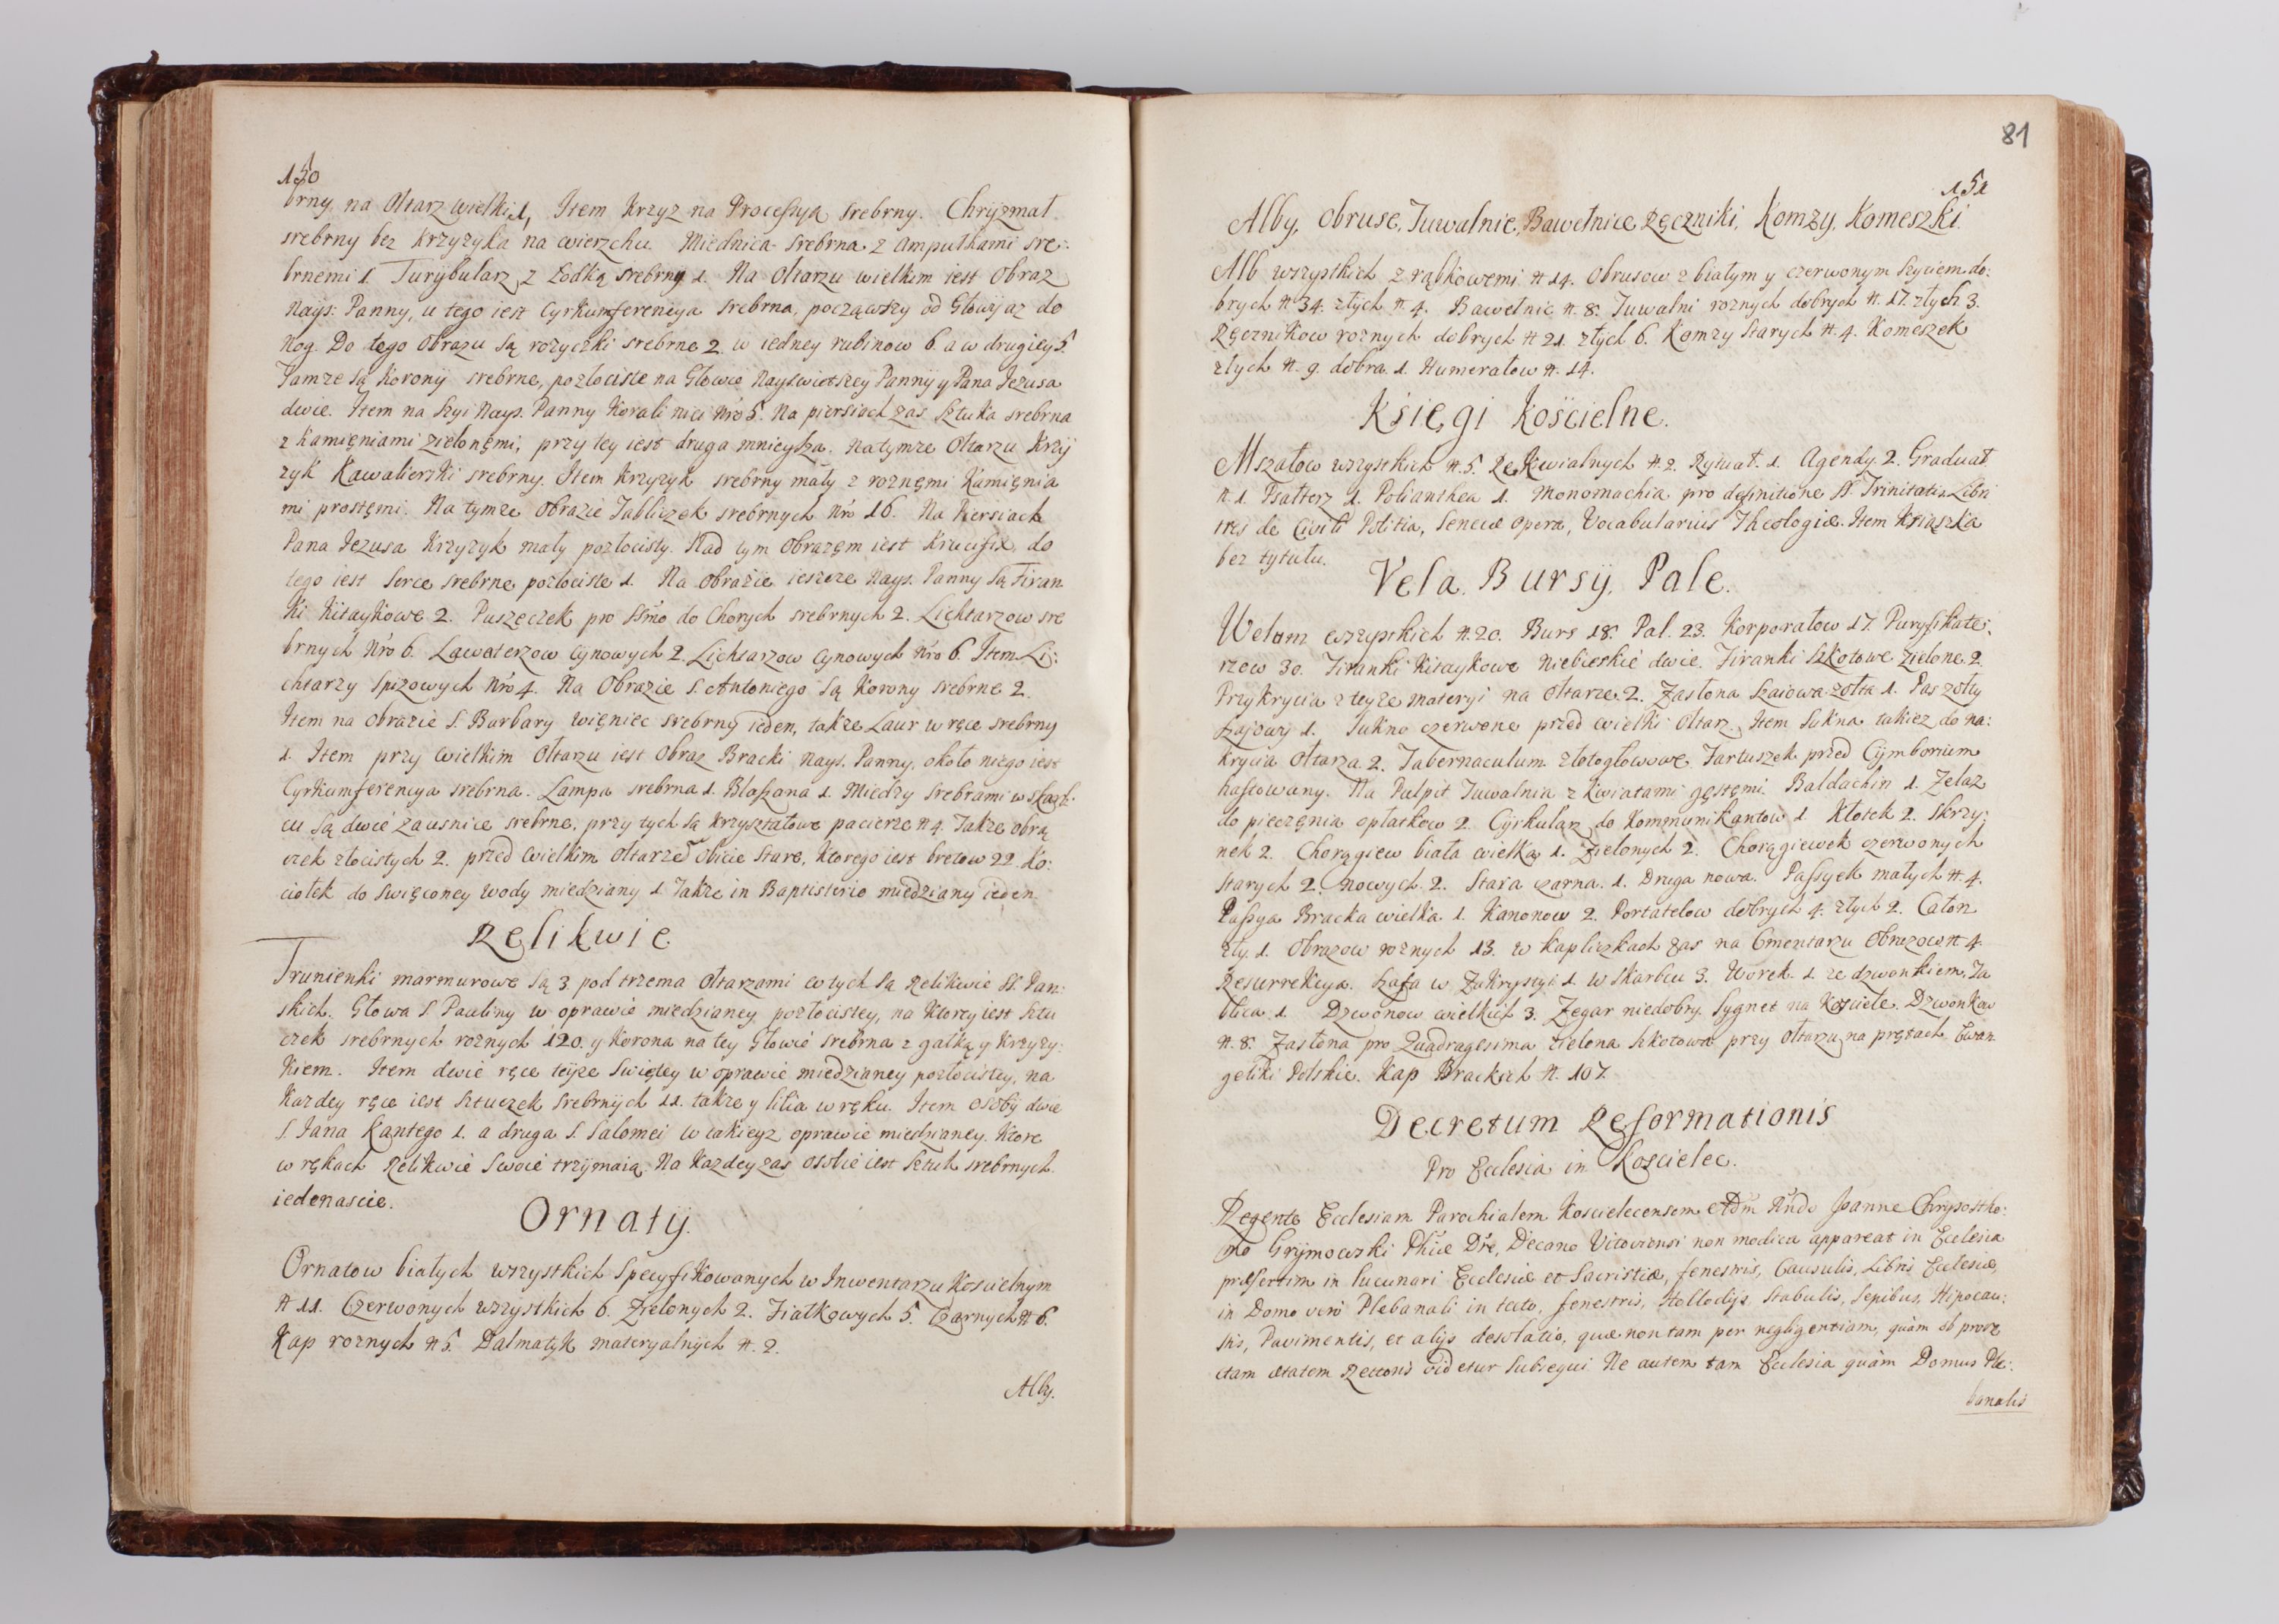 150
brny na Ołtarz wielki 1, Item Krzyz na Processyą srebrny. Chryzmał
srebrny bez Krzyzyka na wierzchu. Miednica srebrna z ampułkami sre:
brnemi 1. Turybularz z Łodką srebrny 1. Na Ołtarzu wielkim iest Obraz
Nays: Panny, u tego iest Cyrkumferencya srebrna, począwszy od Głowy az do
Nog. Do tego Obrazu są rozyczki srebrne 2. w iedney rubinow 6. a w drugiey 5.
Tamze są Korony srebrne, pozłociste na Głowie Nayswiętszey Panny y Pana Jezusa
dwie. Item na Szyi Nays. Panny Korali nici Nro 5. Na piersiach zas Sztuka srebrna
z Kamięniami zielonęmi, przy tey iest druga mnieysza. Na tymze Ołtarzu Krzy
zyk Kawalierski srebrny. Item Krzyzyk srebrny mały z roznęmi Kamięnia
mi prostęmi. Na tymze Obrazie Tabliczek srebrnych Nro 16. Na Piersiach
Pana Jezusa Krzyzyk mały pozłocisty. Nad tym Obrazęm iest Krucifix, do
tego iest Serce srebrne pozłociste 1. Na Obrazie ieszcze Nays. Panny są Firan
ki Kitaykowe 2. Puszeczek pro SSmo do Chorych srebrnych 2. Lichtarzow sre
brnych Nro 6. Lawaterzow Cynowych 2. Lichtarzow Cynowych Nro 6. Item Li:
chtarzy Spizowych Nro 4. Na Obrazie S. Antoniego są Korony srebrne 2.
Item na Obrazie S. Barbary więniec srebrny ieden, takze Laur w ręce srebrny
1. Item przy wielkim Ołtarzu iest Obraz Bracki Nays. Panny, około niego iest
Cyrkumferencya srebrna. Lampa srebrna 1. Blaszana 1. Miedzy srebrami w skarb:
cu są dwie zausnice srebrne, przy tych są Krzyształowe pacierze # 4. Takze obrą
czek złocistych 2. przed wielkim Ołtarzę obicie stare, Ktorego iest bretow 22. Ko:
ciołek do swięconey wody miedziany 1. Takze in Baptisterio miedziany ieden.
Relikwie
Trunienki marmurowe są 3 pod trzema Ołtarzami w tych są Relikwie SS. Pan:
skich. Głowa S. Pauliny w oprawie miedzianey pozłocistey, na Ktorey iest Sztu
czek srebrnych roznych 120. y Korona na tey Głowie srebrna z gałką y Krzyzy:
kiem. Item dwie ręce teyze Swiętey w oprawie miedzianey pozłocistey, na
Kazdey ręce iest Sztuczek srebrnych 11. takze y lilia w ręku. Item osoby dwie
S. Jana Kantego 1. a druga S. Salomei w takieyz oprawie miedzianey. Ktore
w rękach Relikwie Swoie trzymaią. Na Kazdey zas osobie iest Sztuk srebrnych
iedenascie.
Ornaty.
Ornatow białych wszystkich Specyfikowanych w Inwentarzu Koscielnym
# 11. Czerwonych wszystkich 6. Zielonych 2. Fiałkowych 5. Czarnych # 6.
Kap roznych # 5. Dalmatyk materyalnych #. 2.
Alby.
81
151
Alby, Obruse, Tuwalnie, Bawełnice Ręczniki, Komzy, Komeszki.
Alb wszystkich z rąbkowemi # 14. Obrusow z białym y czerwonym szyciem do:
brych # 34. złych #. 4. Bawełnic #. 8. Tuwalni roznych dobrych #. 17. złych 3.
Ręcznikow roznych dobrych # 21. złych 6. Komzy Starych #. 4. Komeszek
złych #. 9. dobra. 1. Humerałow #. 14.
Księgi Kościelne.
Mszałow wszystkich #. 5. Rekwialnych #. 2. Rytuał. 1. Agendy. 2. Graduał
#. 1. Psałterz 1. Polianthea 1. Monomachia pro definitione SS. Trinitatis Libri
tres de Civili Politia, Senecæ Opera, Vocabularius Theologiæ. Item Ksiąszka
bez tytułu.
Vela. Bursy, Pale.
Welum wszystkich #. 20. Burs 18. Pal. 23. Korporałow 17. Puryfikate:
rzow 30. Firanki Kitaykowe Niebieskie dwie. Firanki Szkotowe Zielone 2.
Przykrycia z teyze materyi na Ołtarze. 2. Zasłona Szaiowa zołta 1. Pas zołty
szajowy 1. Sukno czerwone przed wielki Ołtarz. Item Sukna takiez do na:
krycia Ołtarza 2. Tabernaculum złotogłowowe. Fartuszek przed Cymborium
haftowany. Na Pulpit Tuwalnia z Kwiatami gęstęmi. Baldachin 1. Zelaz
do pieczęnia opłatkow 2. Cyrkularz do Kommunikantow 1. Kłotek 2. Skrzy:
nek 2. Chorągiew biała wielka 1. Zielonych 2. Chorągiewek czerwonych
Starych 2. nowych. 2. Stara czarna. 1. Druga nowa. Passyek małych #. 4.
Passya Bracka wielka. 1. Kanonow 2. Portatelow dobrych 4. złych 2. Całon
zły. 1. Obrazow roznych 13. w Kapliczkach zas na Cmentarzu Obrazow #. 4.
Resurrekcya. Szafa w Zakrystyi 1. w Skarbcu 3. Worek. 1. ze dzwonkiem. Ta
blica. 1. Dzwonow wielkich 3. Zegar niedobry. Sygnet na Kosciele. Dzwonkow
#. 8. Zasłona pro Quadragesima zielona szkotowa przy Ołtarzu na prętach. Ewan
geliki Polskie. Kap Brackich #. 107.
Decretum Reformationis
Pro Ecclesia in Koscielec.
Regente Ecclesiam Parochialem Koscielecensem Adm Rndo Joanne Chrysostho:
mo Grymowski Phiæ Dre, Decano Vitoviensi non modica appareat in Ecclesia
præsertim in lucunari Ecclesiæ et Sacristiæ, fenestris, Causulis, Libris Ecclesiæ,
in Domo vero Plebanali in tecto, fenestris, Stabulis, Sepibus, Hipocau:
stis, Pavimentis, et alijs desolatio, quæ non tam per negligentiam, quàm ob prove
ctam ætatem Rectoris videtur subsequi. Ne autem tam Ecclesia quàm Domus Ple:
banalis